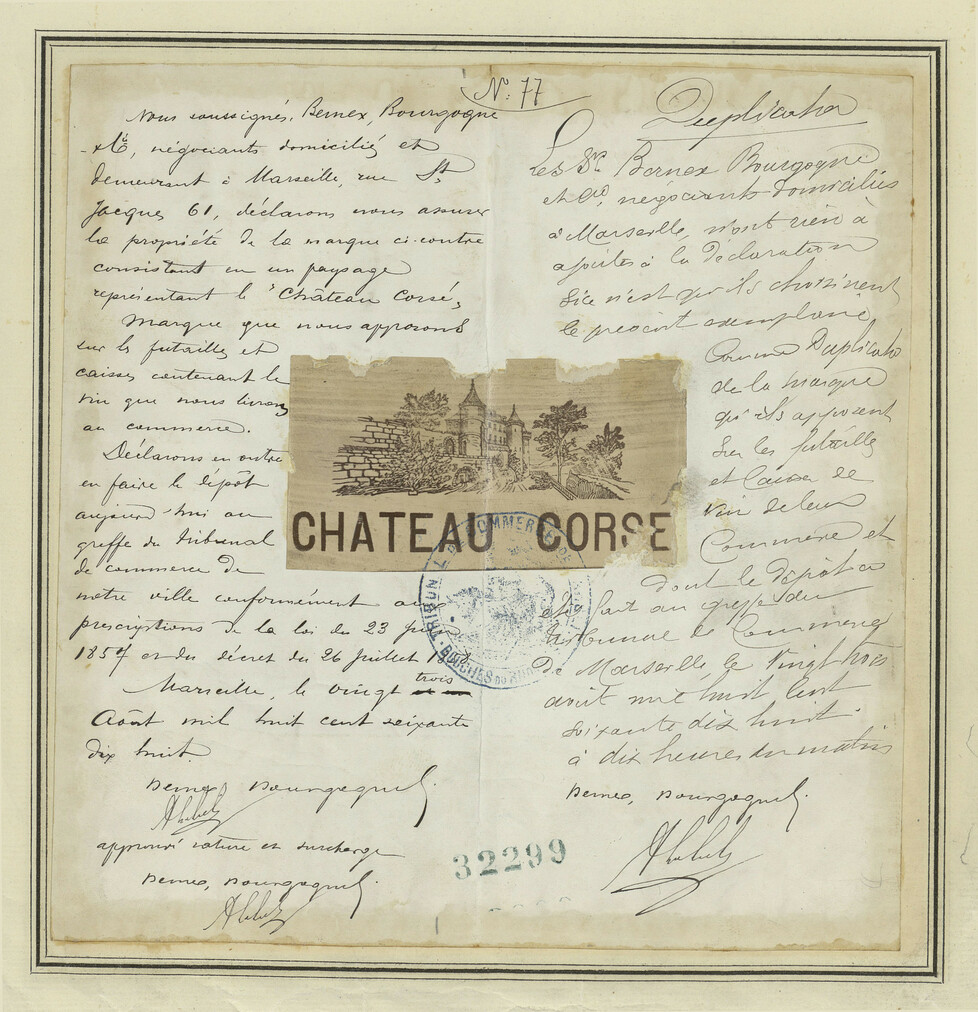 Nº 77
Nous soussignés, Bernex, Bourgogne
& Cie, négociants domiciliés et
demeurant à Marseille, rue St
Jacques 61, déclarons nous assurer
la propriété de la marque ci-contre
consistant en un paysage
représentant le "Château Corse",
marque que nous apposons
sur les futailles et
caisses contenant le
vin que nous livrons
au commerce.
Déclarons en outre
en faire le dépôt
aujourd'hui au
greffe du tribunal
de commerce de
notre ville conformément aux
prescriptions de la loi du 23 juin
1857 et du décret du 26 juillet
Marseille, le vingt trois
Août mil huit cent soixante
dix huit.
Bernex, Bourgogne
approuvé rature et surcharge
Bernex, Bourgogne
Duplicata
Les Srs Bernex Bourgogne
et Cie, négociants domiciliés
à Marseille, n'ont rien à
ajouter à la déclaration
si ce n'est qu'ils choisissent
le présent exemplaire
Comme Duplicata
de la marque
qu'ils apposent
sur les futailles
et Caisses de
vin de leur
Commerce et
dont le dépôt a
été fait au greffe du
tribunal de Commerce
de Marseille le Vingt trois
août mil huit Cent
soixante dix huit
à dix heures du matin
Bernex, Bourgogne
CHATEAU CORSE
TRIBUNAL DE COMMERCE DE
BOUCHES DU RHÔNE
32299